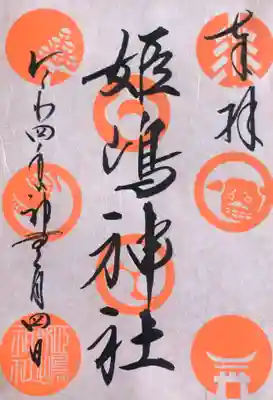 奉拝
姫嶋神社
令和四年神無月四日